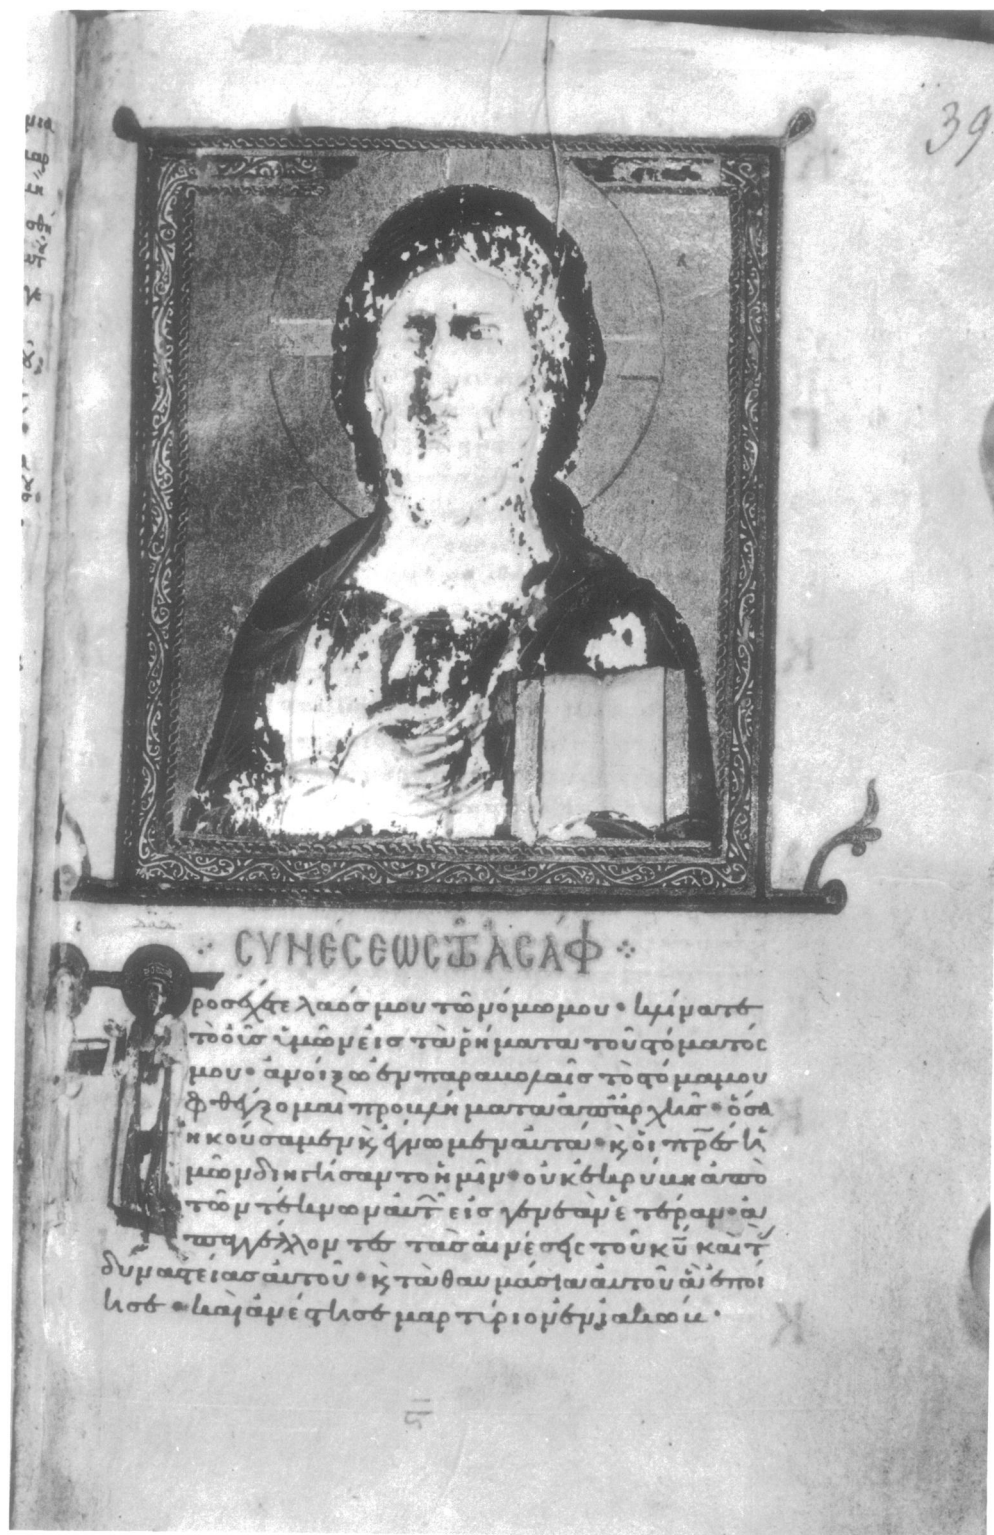 39
ΣΥΝΕΣΕΩΣ ΤΩ ΑΣΑΦ
ροσέχετε λαός μου τῶ νόμω μου· κλίνατε
τὸ οὖς ὑμῶν εἰς τὰ ῥήματα τοῦ στόματός
μου· ἀνοίξω ἐν παραβολαῖς τὸ στόμα μου
φθέγξομαι προβλήματα ἀπ' ἀρχῆς· ὅσα
ἠκούσαμεν κ ἔγνωμεν αὐτά· κ οἱ πρες ἡ
μῶν διηγήσαντο ἡμῖν· οὐκ ἐκρύβη ἀπὸ
τῶν τέκνων αὐτ εἰς γενεὰν ἑτέραν· ἀ
παγγέλλοντες τὰς αἰνέσεις τοῦ κυ καὶ τ
δυναστείας αὐτοῦ· κ τὰ θαυμάσια αὐτοῦ ἃ ἐποί
ησε· καὶ ἀνέστησε μαρτίριον ἐν ἰακώβ·